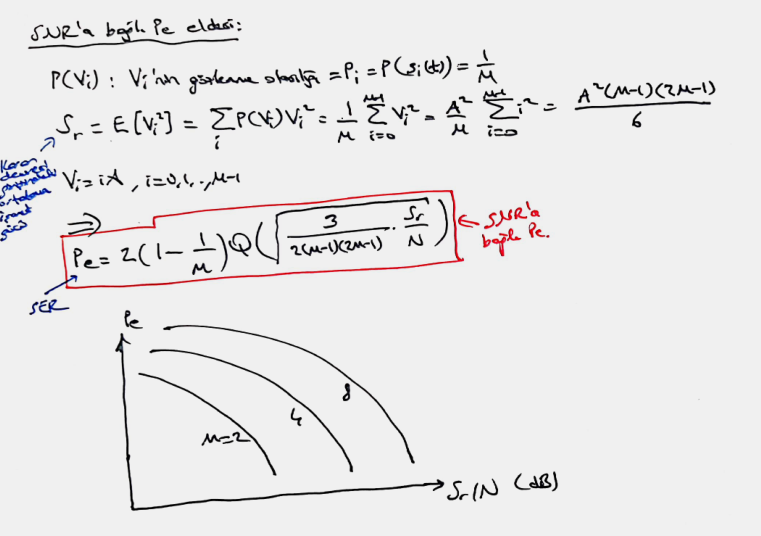 SNR'a bağlı Pe eldesi:
P(Vi) : Vi'nin gözlenme olasılığı = Pi = P(si(t)) = 1/M
Sr = E[Vi²] = ∑i P(Vi)Vi² = 1/M ∑i=0^M-1 Vi² = A²/M ∑i=0^M-1 i² = A²(M-1)(2M-1)/6
Karar devresi girişindeki ortalama işaret gücü
Vi = iA, i=0,1,..,M-1
⇒ Pe = 2(1 - 1/M) Q(√(3/(2(M-1)(2M-1)) · Sr/N)) ← SNR'a bağlı Pe.
SER
Pe
8
4
M=2
Sr/N (dB)